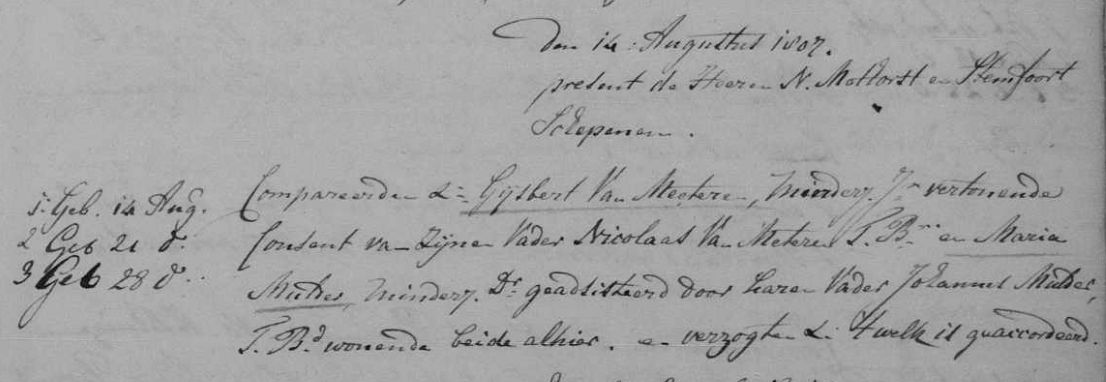 Den 14 Augustus 1807.
present de Heeren N. Mottorst en Stemfoort
Schepenen.
1. Geb. 14 Aug.
2 Geb 21 do.
3 Geb 28 do.
Compareerden &= Gijsbert Van Meeteren, Minderj. Jn vertonende
Consent van Zijnen Vader Nicolaas Van Meteren T. B. en Maria
Mulder, Minderj. Dr geadsisteerd door haren Vader Johannes Mulder,
T. Bd wonende beide alhier. en verzogten &= 't welk is geaccordeerd.